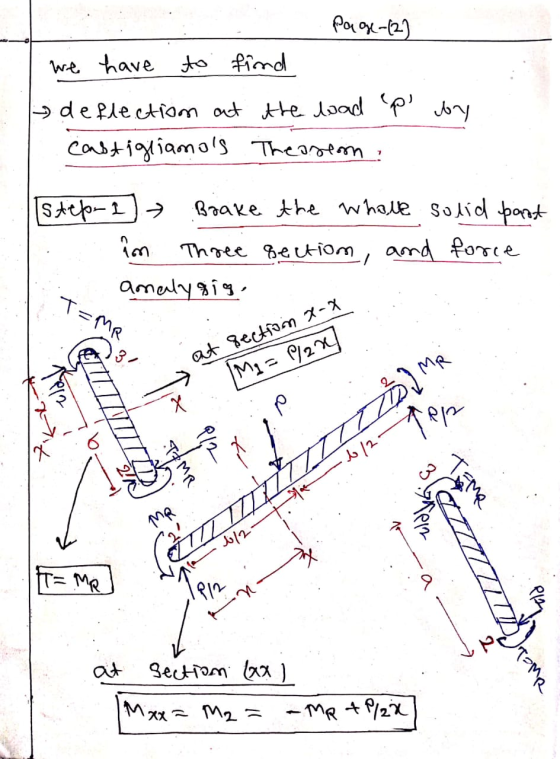 Page-(2)
we have to find
→ deflection at the load 'P' by
Castigliamo's Theorem.
Step-1 → Brake the whole solid part
in Three section, and force
analysis.
T = MR
3'
at section x-x
M1 = P/2x
P/2
x
X
X
6
2'
P/2
T=MR
T = MR
MR
2'
P/2
b/2
x
X
X
P
b/2
2
MR
P/2
3
T=MR
P/2
a
P/2
2
T=MR
at section (xx)
Mxx = M2 = -MR + P/2x